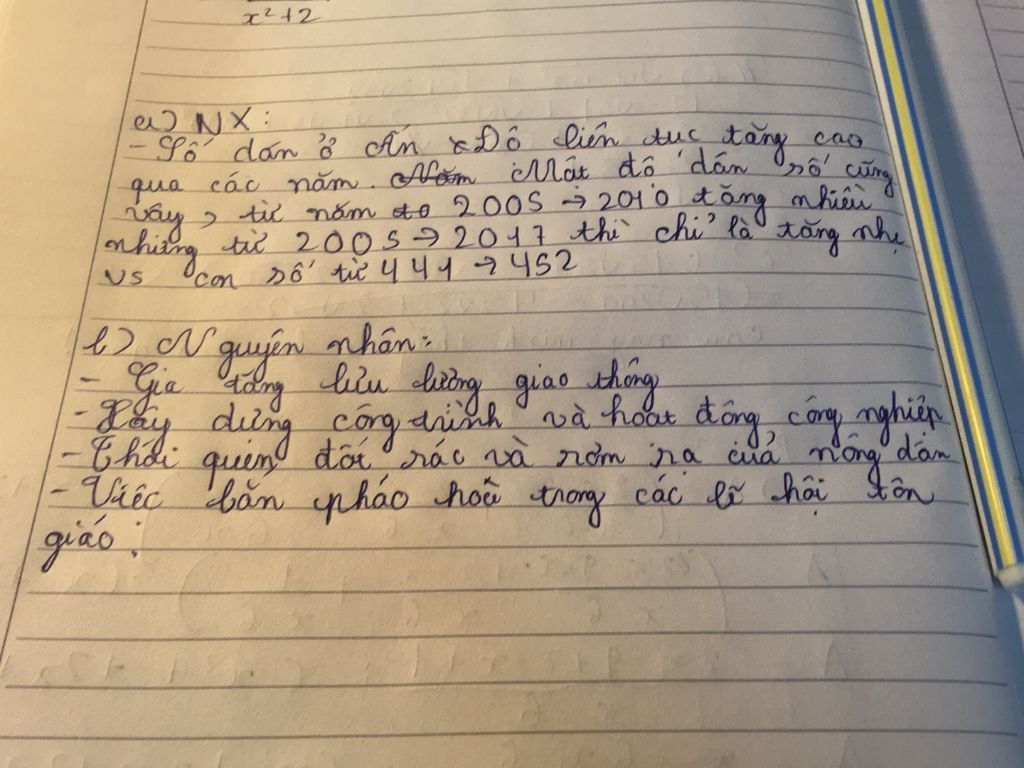 x²+2
a) NX:
- Số dân ở Ấn Độ liên tục tăng cao
qua các năm. Mật độ dân số cũng
vậy, từ năm 2005 → 2010 tăng nhiều
nhưng từ 2005 → 2017 thì chỉ là tăng nhẹ
vs con số từ 441 → 452
b) Nguyên nhân:
- Gia tăng lưu lượng giao thông
- Xây dựng công trình và hoạt động công nghiệp
- Thói quen đốt rác và rơm rạ của nông dân
- Việc bắn pháo hoa trong các lễ hội tôn
giáo.